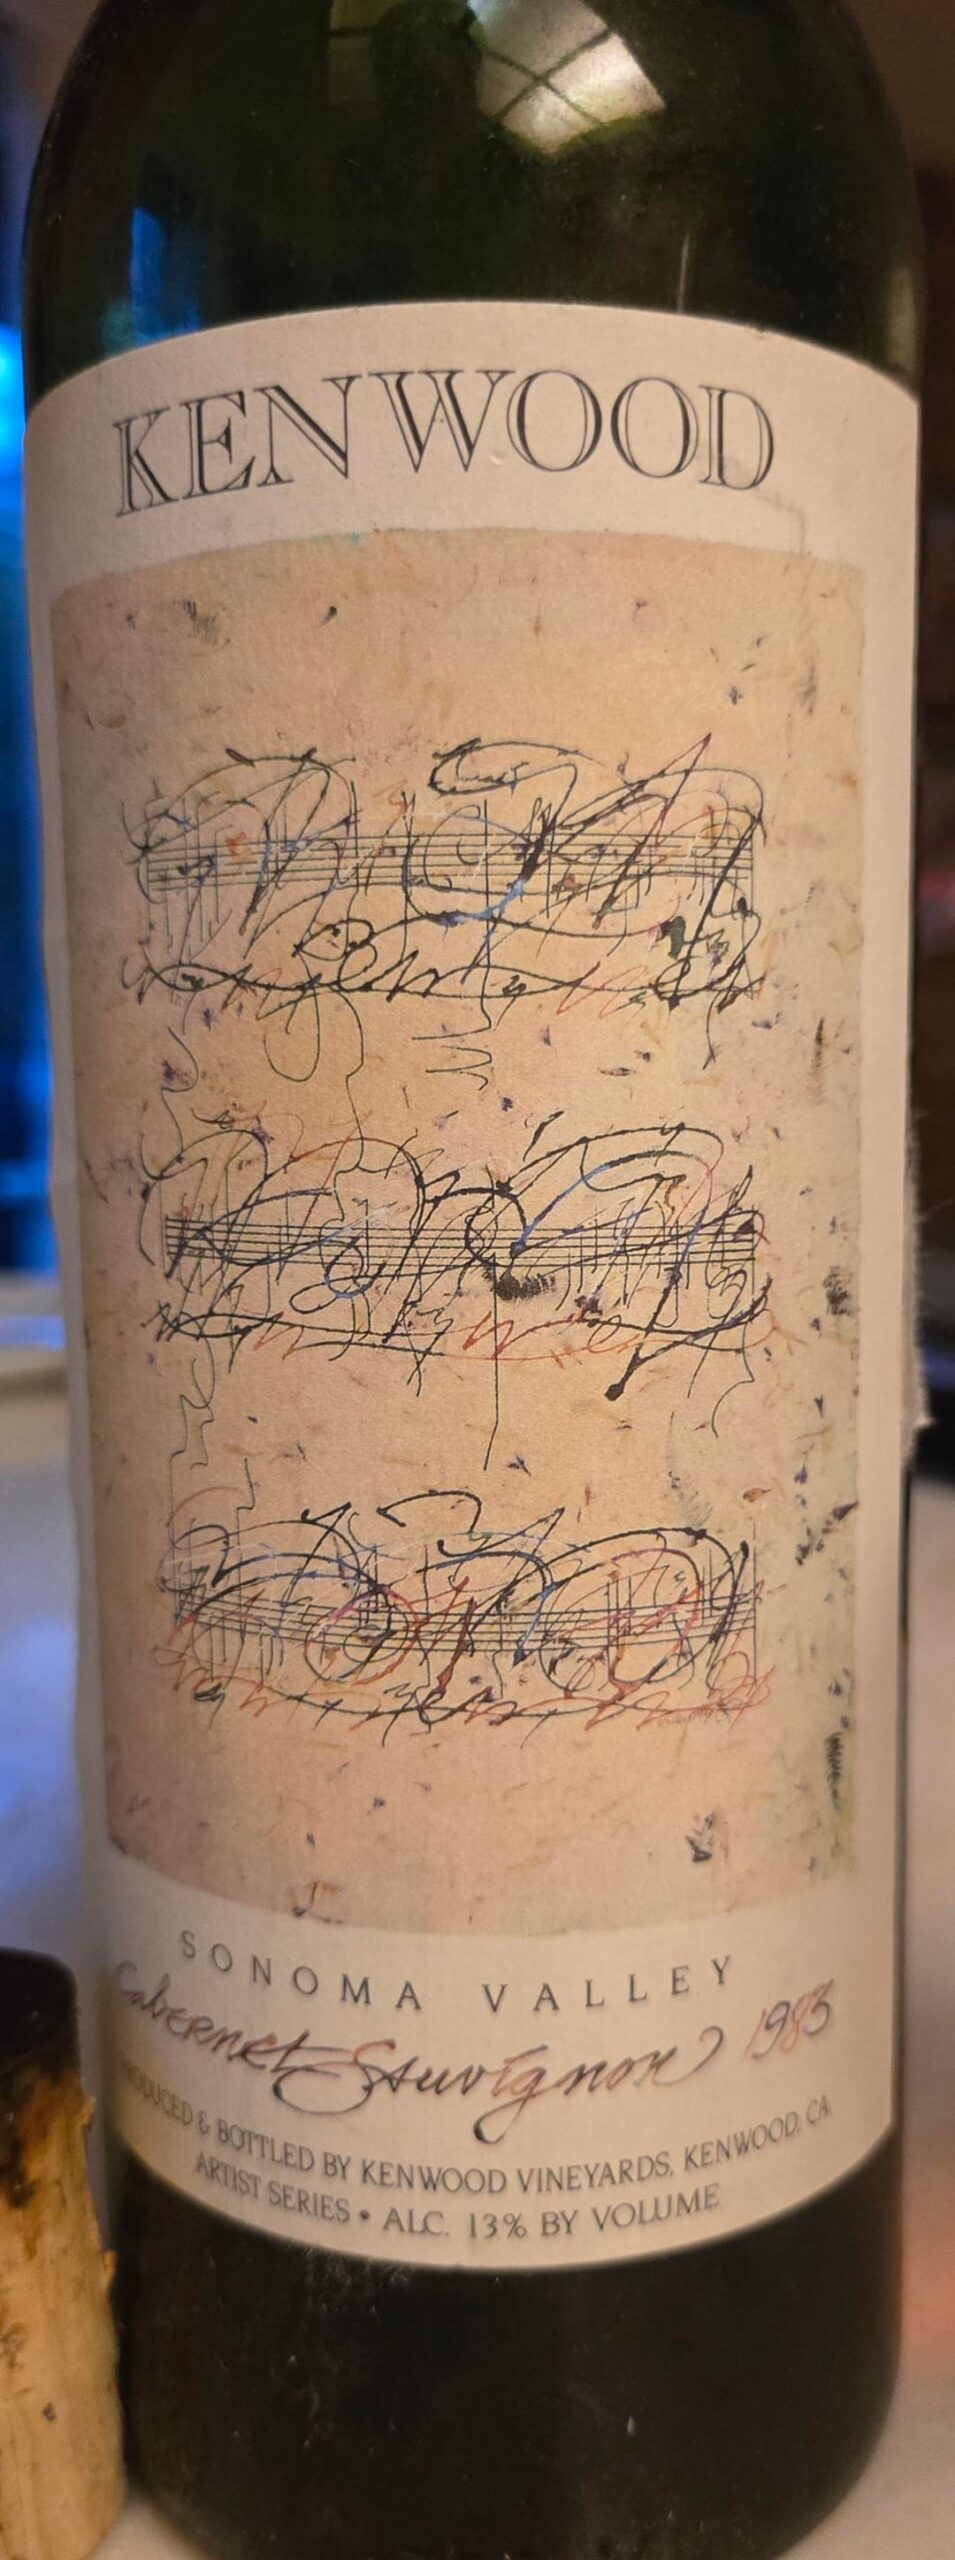 KENWOOD
SONOMA VALLEY
Cabernet Sauvignon 1983
PRODUCED & BOTTLED BY KENWOOD VINEYARDS, KENWOOD, CA
ARTIST SERIES • ALC. 13% BY VOLUME